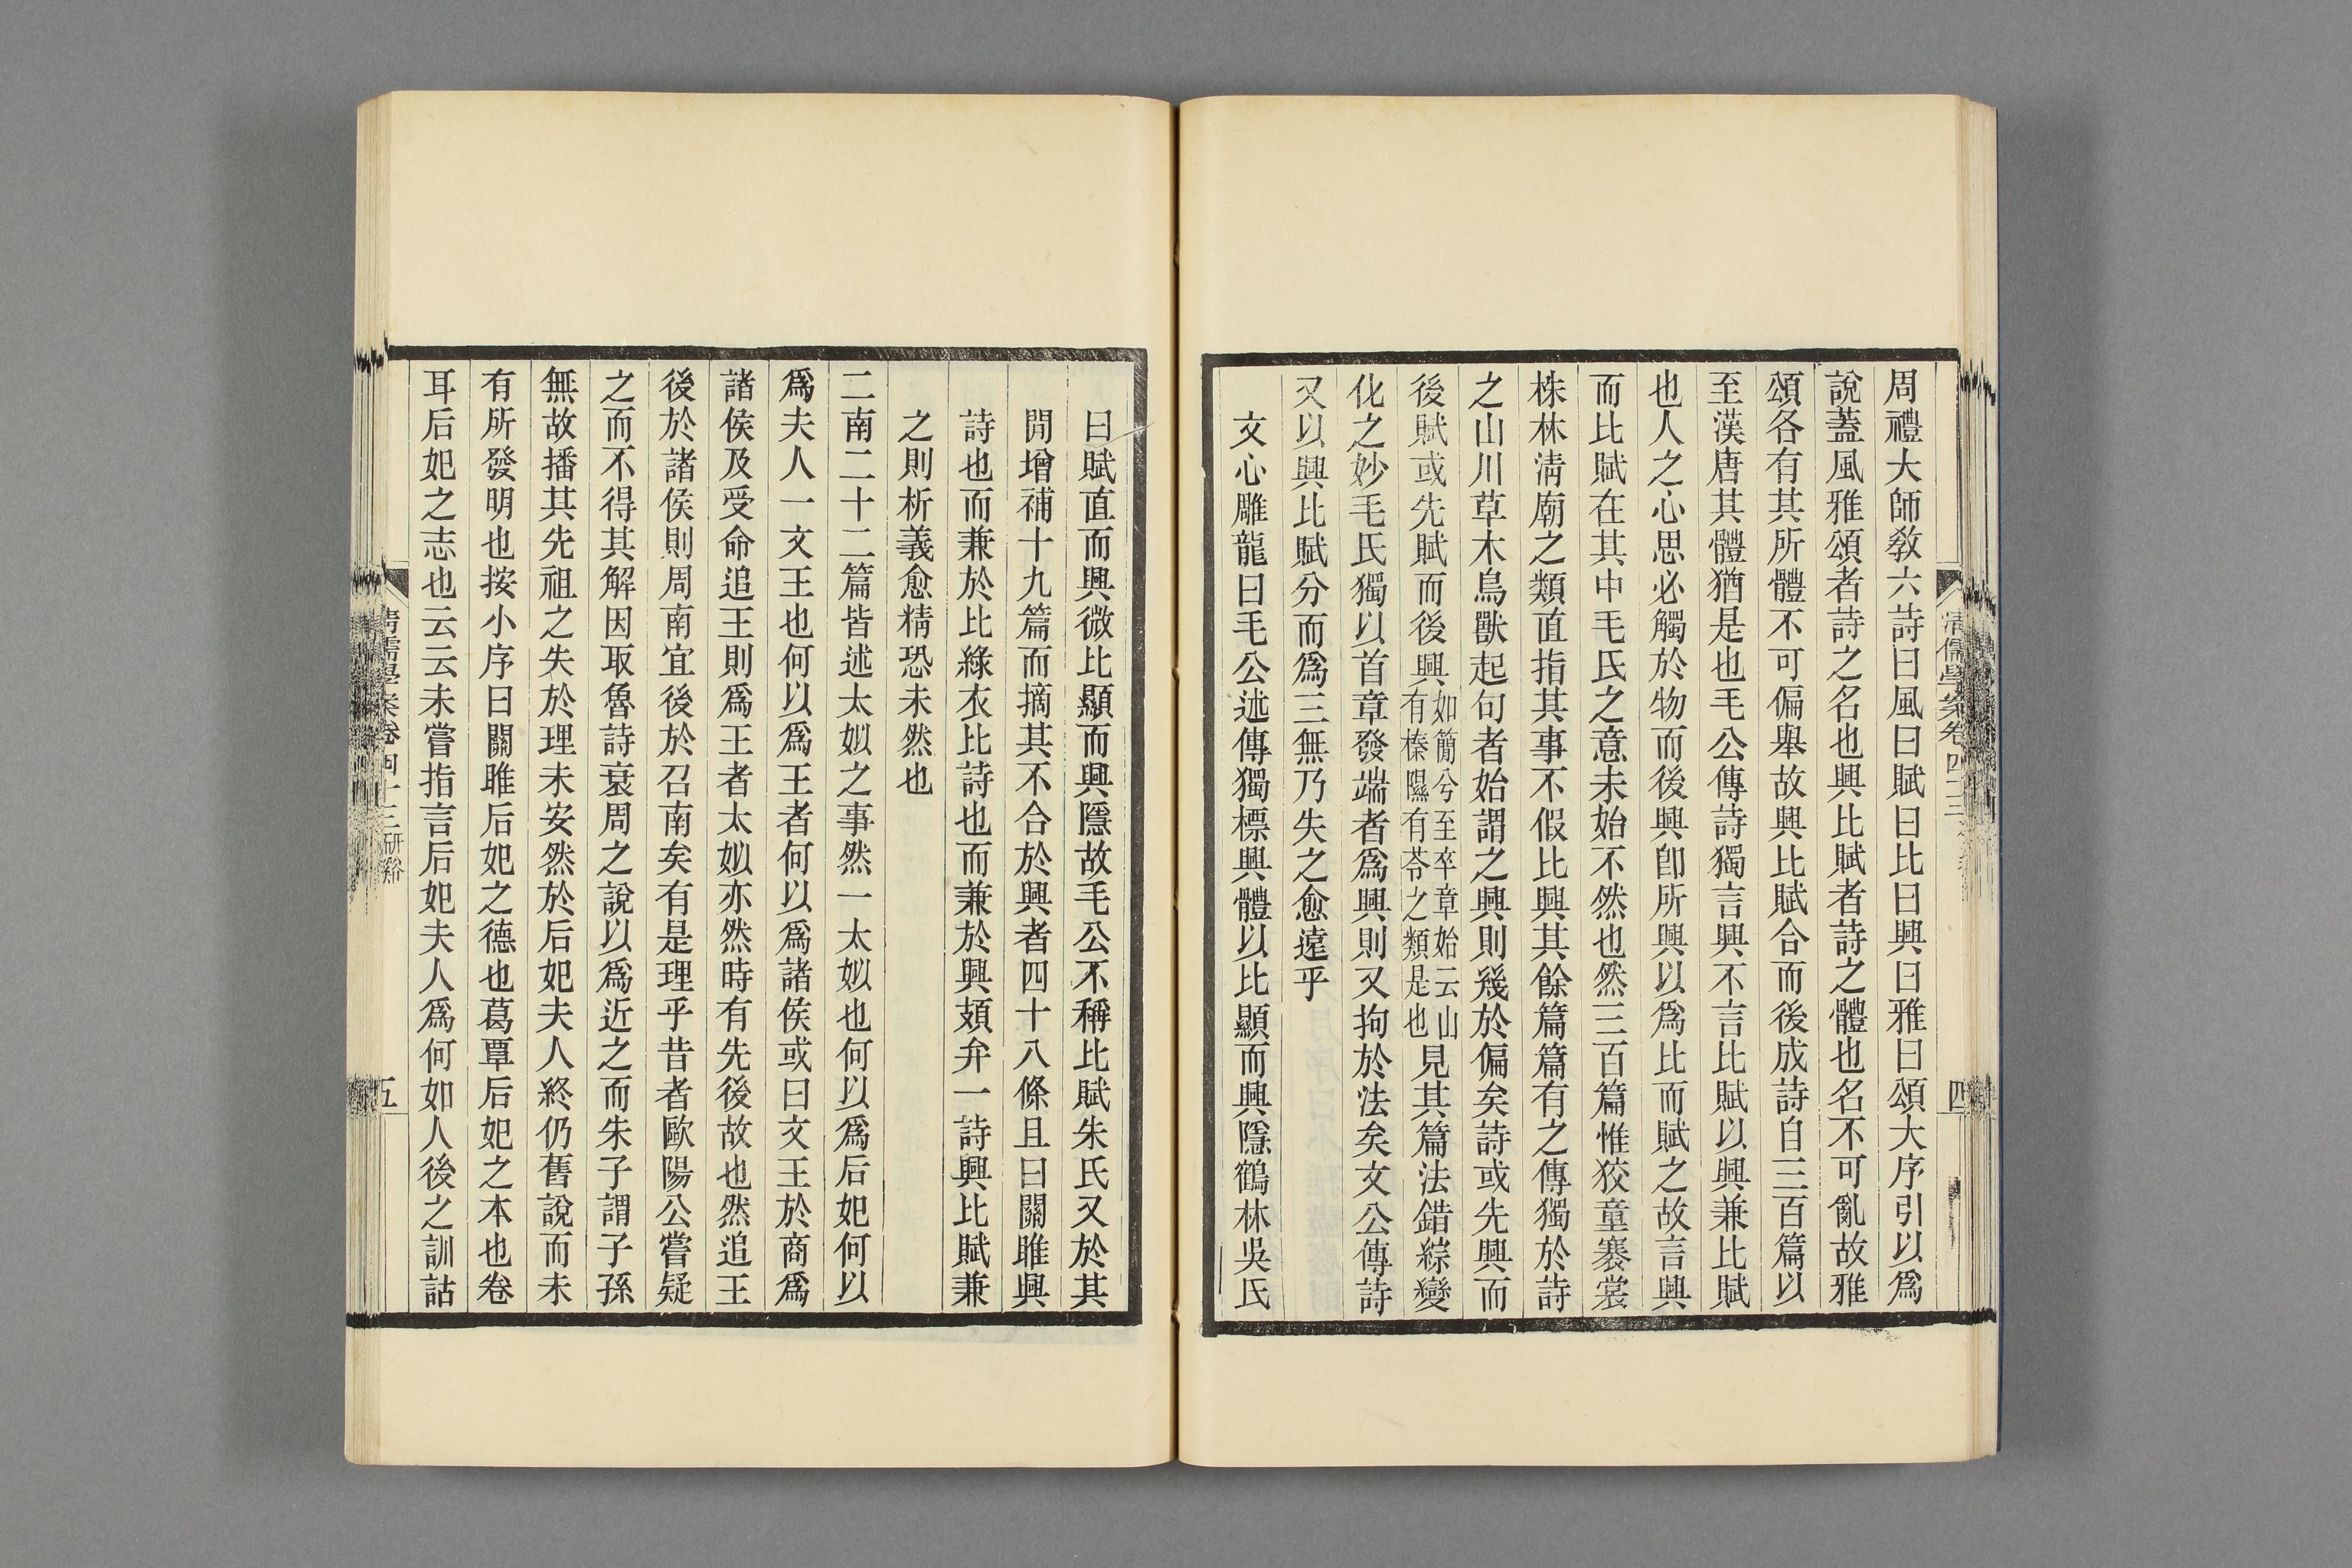 清儒學案卷四十三
四
周禮大師敎六詩曰風曰賦曰比曰興曰雅曰頌大序引以爲
說蓋風雅頌者詩之名也興比賦者詩之體也名不可亂故雅
頌各有其所體不可偏舉故興比賦合而後成詩自三百篇以
至漢唐其體猶是也毛公傳詩獨言興不言比賦以興兼比賦
也人之心思必觸於物而後興卽所興以爲比而賦之故言興
而比賦在其中毛氏之意未始不然也然三百篇惟狡童褰裳
株林淸廟之類直指其事不假比興其餘篇篇有之傳獨於詩
之山川草木鳥獸起句者始謂之興則幾於偏矣詩或先興而
後賦或先賦而後興如簡兮至卒章始云山有榛隰有苓之類是也見其篇法錯綜變
化之妙毛氏獨以首章發端者爲興則又拘於法矣文公傳詩
又以興比賦分而爲三無乃失之愈遠乎
文心雕龍曰毛公述傳獨標興體以比顯而興隱鶴林吳氏
曰賦直而興微比顯而興隱故毛公不稱比賦朱氏又於其
閒增補十九篇而摘其不合於興者四十八條且曰關雎興
詩也而兼於比綠衣比詩也而兼於興頍弁一詩興比賦兼
之則析義愈精恐未然也
二南二十二篇皆述太姒之事然一太姒也何以爲后妃何以
爲夫人一文王也何以爲王者何以爲諸侯或曰文王於商爲
諸侯及受命追王則爲王者太姒亦然時有先後故也然追王
後於諸侯則周南宜後於召南矣有是理乎昔者歐陽公嘗疑
之而不得其解因取魯詩衰周之說以爲近之而朱子謂子孫
無故播其先祖之失於理未安然於后妃夫人終仍舊說而未
有所發明也按小序曰關雎后妃之德也葛覃后妃之本也卷
耳后妃之志也云云未嘗指言后妃夫人爲何如人後之訓詁
清儒學案卷四十三 研谿
五